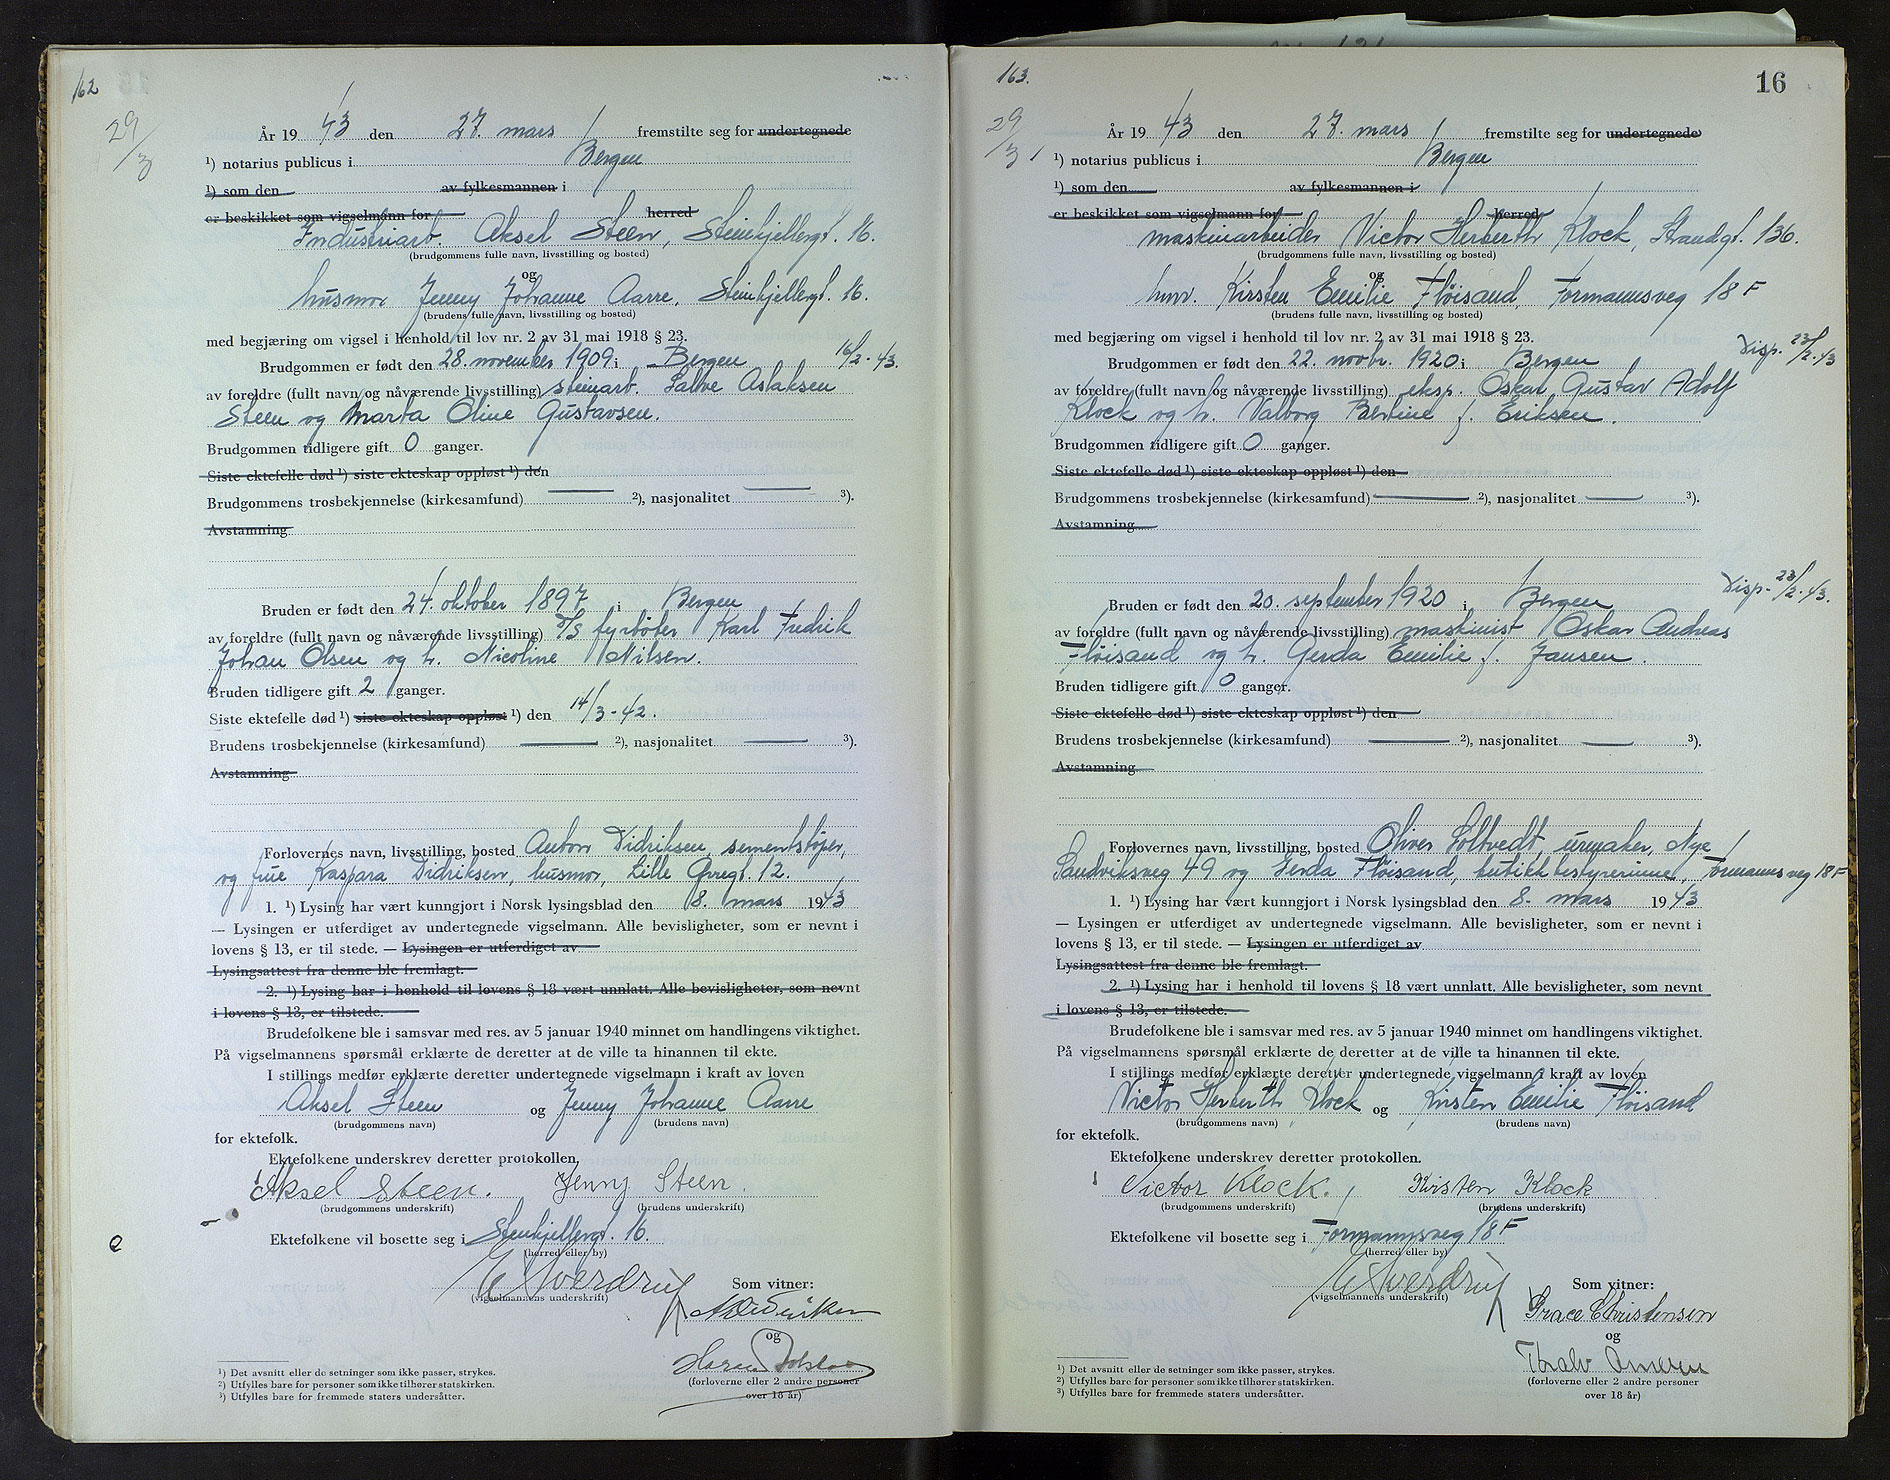 162
29/3
År 19 43 den 27. mars fremstilte seg for undertegnede
¹) notarius publicus i Bergen
¹) som den av fylkesmannen i
er beskikket som vigselmann for herred
Industriarb. Aksel Steen, Steinkjellergt. 16.
(brudgommens fulle navn, livsstilling og bosted)
og
husmor Jenny Johanne Aarre, Steinkjellergt. 16.
(brudens fulle navn, livsstilling og bosted)
med begjæring om vigsel i henhold til lov nr. 2 av 31 mai 1918 § 23.
Brudgommen er født den 28. november 1909 i Bergen 16/2-43.
av foreldre (fullt navn og nåværende livsstilling) steinarb. Salve Aslaksen
Steen og Marta Oline Gustavsen.
Brudgommen tidligere gift 0 ganger.
Siste ektefelle død ¹) siste ekteskap oppløst ¹) den
Brudgommens trosbekjennelse (kirkesamfund) ²), nasjonalitet ³).
Avstamning
Bruden er født den 24. oktober 1897 i Bergen
av foreldre (fullt navn og nåværende livsstilling) D/S fyrbøter Karl Fredrik
Johan Olsen og h. Nicoline Nilsen.
Bruden tidligere gift 2 ganger.
Siste ektefelle død ¹) siste ekteskap oppløst ¹) den 14/3-42.
Brudens trosbekjennelse (kirkesamfund) ²), nasjonalitet ³).
Avstamning
Forlovernes navn, livsstilling, bosted Anton Didriksen, sementstøper,
og frue Kaspara Didriksen, husmor, Lille Øvregt. 12.
1. ¹) Lysing har vært kunngjort i Norsk lysingsblad den 8. mars 1943
— Lysingen er utferdiget av undertegnede vigselmann. Alle bevisligheter, som er nevnt i
lovens § 13, er til stede. — Lysingen er utferdiget av
Lysingsattest fra denne ble fremlagt.
2. ¹) Lysing har i henhold til lovens § 18 vært unnlatt. Alle bevisligheter, som nevnt
i lovens § 13, er tilstede.
Brudefolkene ble i samsvar med res. av 5 januar 1940 minnet om handlingens viktighet.
På vigselmannens spørsmål erklærte de deretter at de ville ta hinannen til ekte.
I stillings medfør erklærte deretter undertegnede vigselmann i kraft av loven
Aksel Steen og Jenny Johanne Aarre
(brudgommens navn) (brudens navn)
for ektefolk.
Ektefolkene underskrev deretter protokollen.
Aksel Steen. Jenny Steen.
(brudgommens underskrift) (brudens underskrift)
Ektefolkene vil bosette seg i Steinkjellergt. 16.
(herred eller by)
E Sverdrup Som vitner:
(vigselmannens underskrift)
A Didriksen
og
(forloverne eller 2 andre personer
over 18 år)
¹) Det avsnitt eller de setninger som ikke passer, strykes.
²) Utfylles bare for personer som ikke tilhører statskirken.
³) Utfylles bare for fremmede staters undersåtter.
163.
16
29/3
År 19 43 den 27. mars fremstilte seg for undertegnede
¹) notarius publicus i Bergen
¹) som den av fylkesmannen i
er beskikket som vigselmann for herred
maskinarbeider Victor Herberth Klock, Strandgt. 136.
(brudgommens fulle navn, livsstilling og bosted)
og
hmv. Kirsten Emilie Fløisand, Formannsveg 18 F
(brudens fulle navn, livsstilling og bosted)
med begjæring om vigsel i henhold til lov nr. 2 av 31 mai 1918 § 23.
Brudgommen er født den 22. novbr. 1920 i Bergen Disp. 23/2-43
av foreldre (fullt navn og nåværende livsstilling) eksp. Oskar Gustav Adolf
Klock og h. Valborg Bertine f. Eriksen.
Brudgommen tidligere gift 0 ganger.
Siste ektefelle død ¹) siste ekteskap oppløst ¹) den
Brudgommens trosbekjennelse (kirkesamfund) ²), nasjonalitet ³).
Avstamning
Bruden er født den 20. september 1920 i Bergen Disp. 23/2-43.
av foreldre (fullt navn og nåværende livsstilling) maskinist Oskar Andreas
Fløisand og h. Gerda Emilie f. Jansen.
Bruden tidligere gift 0 ganger.
Siste ektefelle død ¹) siste ekteskap oppløst ¹) den
Brudens trosbekjennelse (kirkesamfund) ²), nasjonalitet ³).
Avstamning
Forlovernes navn, livsstilling, bosted Oliver Soltvedt, urmaker, Nye
Sandviksveg 49 og Gerda Fløisand, butikkbestyrerinne, Formannsveg 18F
1. ¹) Lysing har vært kunngjort i Norsk lysingsblad den 8. mars 1943
— Lysingen er utferdiget av undertegnede vigselmann. Alle bevisligheter, som er nevnt i
lovens § 13, er til stede. — Lysingen er utferdiget av
Lysingsattest fra denne ble fremlagt.
2. ¹) Lysing har i henhold til lovens § 18 vært unnlatt. Alle bevisligheter, som nevnt
i lovens § 13, er tilstede.
Brudefolkene ble i samsvar med res. av 5 januar 1940 minnet om handlingens viktighet.
På vigselmannens spørsmål erklærte de deretter at de ville ta hinannen til ekte.
I stillings medfør erklærte deretter undertegnede vigselmann i kraft av loven
Victor Herberth Klock og Kirsten Emilie Fløisand
(brudgommens navn) (brudens navn)
for ektefolk.
Ektefolkene underskrev deretter protokollen.
Victor Klock. Kirsten Klock
(brudgommens underskrift) (brudens underskrift)
Ektefolkene vil bosette seg i Formannsveg 18F
(herred eller by)
E Sverdrup Som vitner:
(vigselmannens underskrift)
Grace Christensen
og
(forloverne eller 2 andre personer
over 18 år)
¹) Det avsnitt eller de setninger som ikke passer, strykes.
²) Utfylles bare for personer som ikke tilhører statskirken.
³) Utfylles bare for fremmede staters undersåtter.